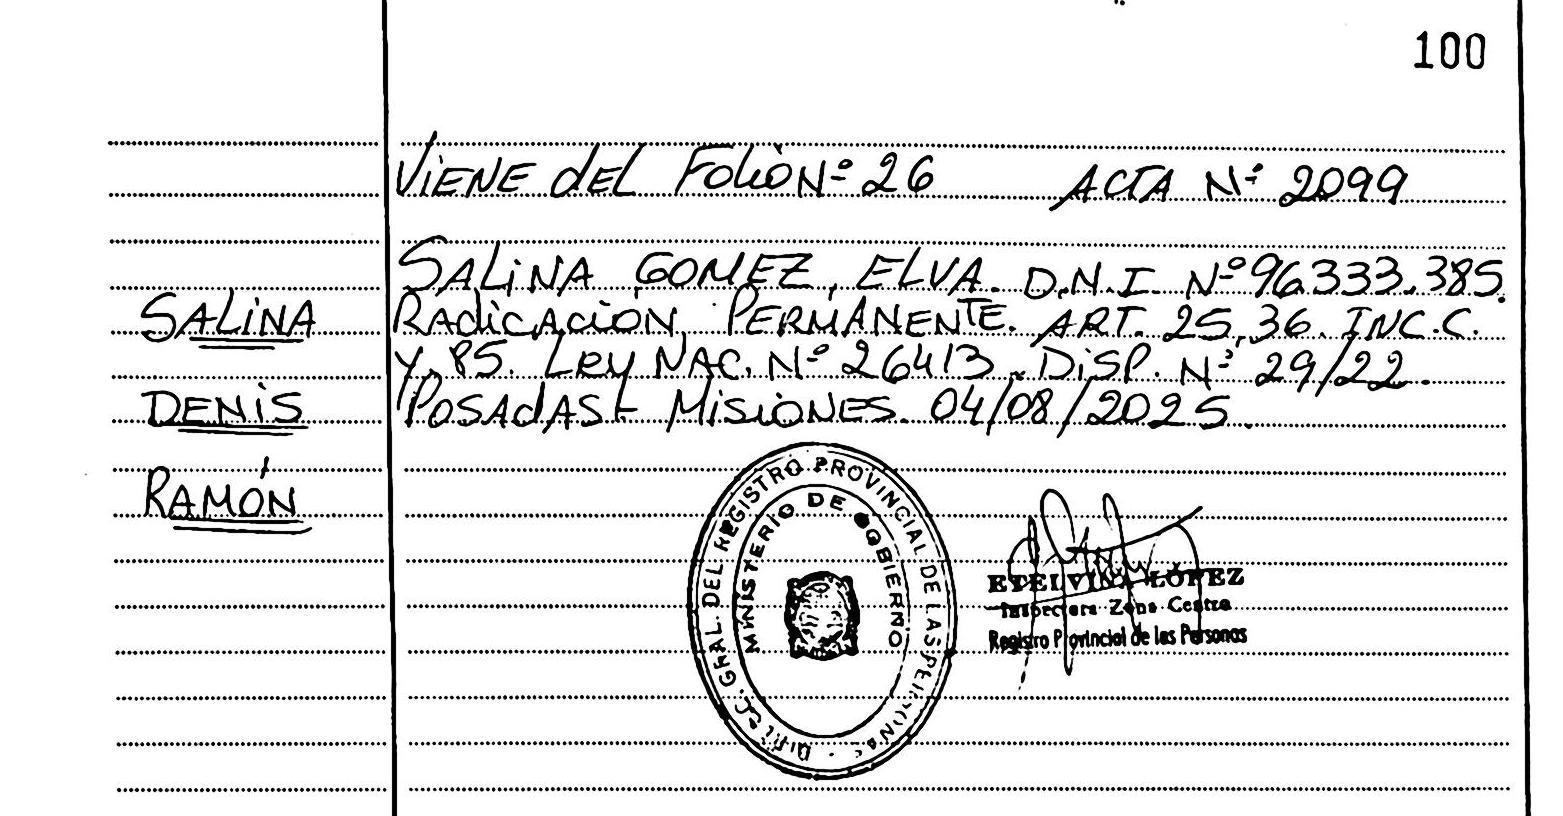 100
VIENE del FOLIO Nº 26 ACTA Nº 2099
SALINA GOMEZ, ELVA. D.N.I. Nº 96333.385.
RADICACIÓN PERMANENTE. ART. 25, 36. INC.C.
Y 85. LEY NAC. Nº 26413. DISP. Nº 29/22.
POSADAS- MISIONES. 04/08/2025.
SALINA
DENIS
RAMÓN
DIREC. GRAL. DEL REGISTRO PROVINCIAL DE LAS PERSONAS
MINISTERIO DE GOBIERNO
ETELVINA LÓPEZ
Inspectora Zona Centro
Registro Provincial de las Personas